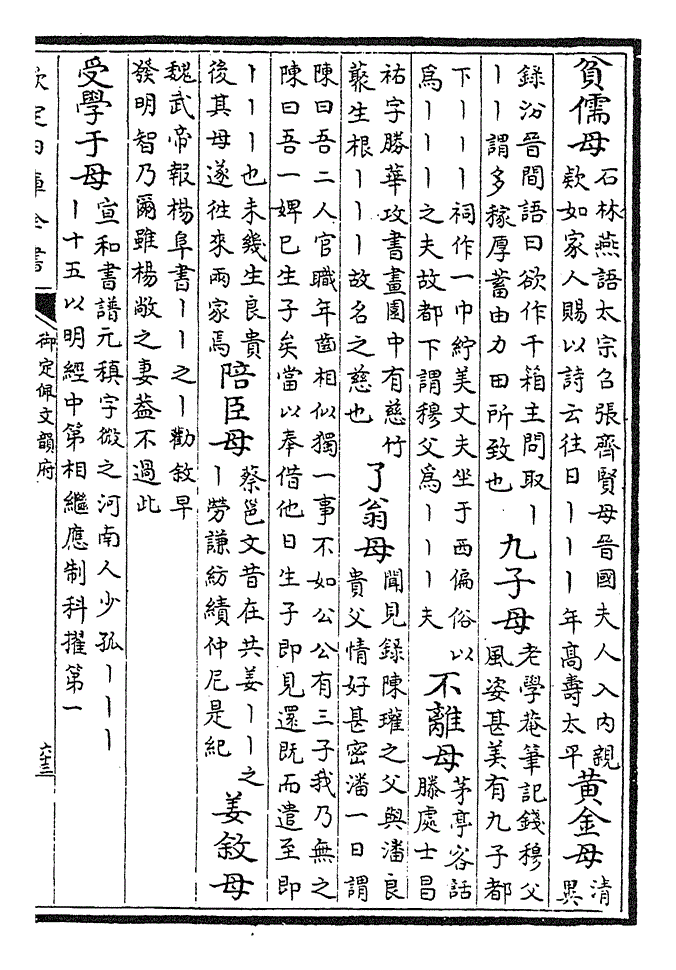 貧儒母
石林燕語太宗召張齊賢母晉國夫人入內親
欵如家人賜以詩云往日丨丨丨年髙壽太平
黃金母
清
異
錄汾晉間語曰欲作千箱主問取丨
丨丨謂多稼厚蓄由力田所致也
九子母
老學菴筆記錢穆父
風姿甚美有九子都
下丨丨丨祠作一巾紵美丈夫坐于西偏俗以
爲丨丨丨之夫故都下謂穆父爲丨丨丨夫
不離母
茅亭客話
滕處士昌
祐字勝華攻書畫園中有慈竹
藂生根丨丨丨故名之慈也
了翁母
聞見錄陳瓘之父與潘良
貴父情好甚密潘一日謂
陳曰吾二人官職年齒相似獨一事不如公公有三子我乃無之
陳曰吾一婢已生子矣當以奉借他日生子即見還既而遣至即
丨丨丨也未幾生良貴
後其母遂往來兩家焉
陪臣母
蔡邕文昔在共姜丨丨之
丨勞謙紡績仲尼是紀
姜敘母
魏武帝報楊阜書丨丨之丨勸敘早
發明智乃爾雖楊敞之妻葢不過此
受學于母
宣和書譜元稹字微之河南人少孤丨丨丨
丨十五以明經中第相繼應制科擢第一
欽定四庫全書
御定佩文韻府
六十三